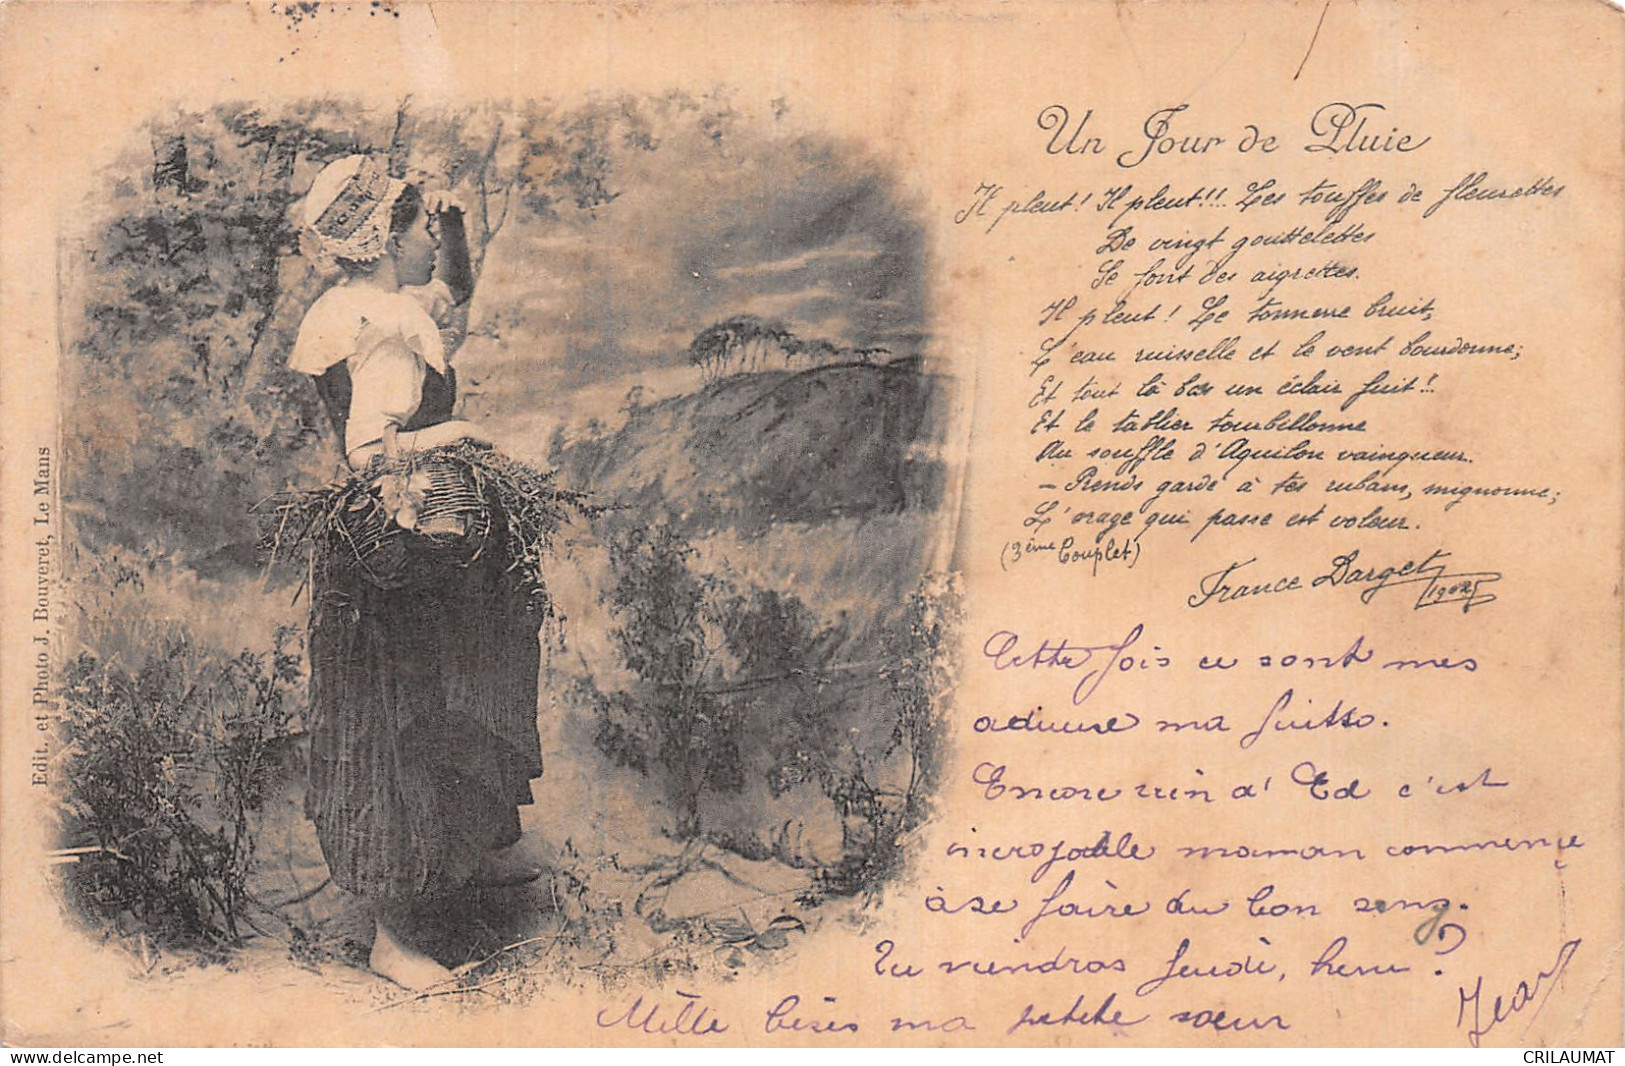 Un Jour de Pluie
Il pleut! Il pleut!!! Les touffes de fleurettes
De vingt gouttelettes
Se font des aigrettes.
Il pleut! Le tonnerre bruit,
L'eau ruisselle et le vent bourdonne;
Et tout là bas un éclair fuit!!
Et le tablier tourbillonne
Au souffle d'Aquilon vainqueur.
- Prends garde à tes rubans, mignonne;
L'orage qui passe est voleur.
(3ème Couplet)
France Darget
1902
Cette fois ce sont mes
ma
Encore rien d' Ed c'est
incroyable maman commence
à se faire du bon sang.
Tu viendras Jeudi, hein?
Mille bises ma petite sœur
Jean
Edit. et Photo J. Bouveret, Le Mans
CRILAUMAT